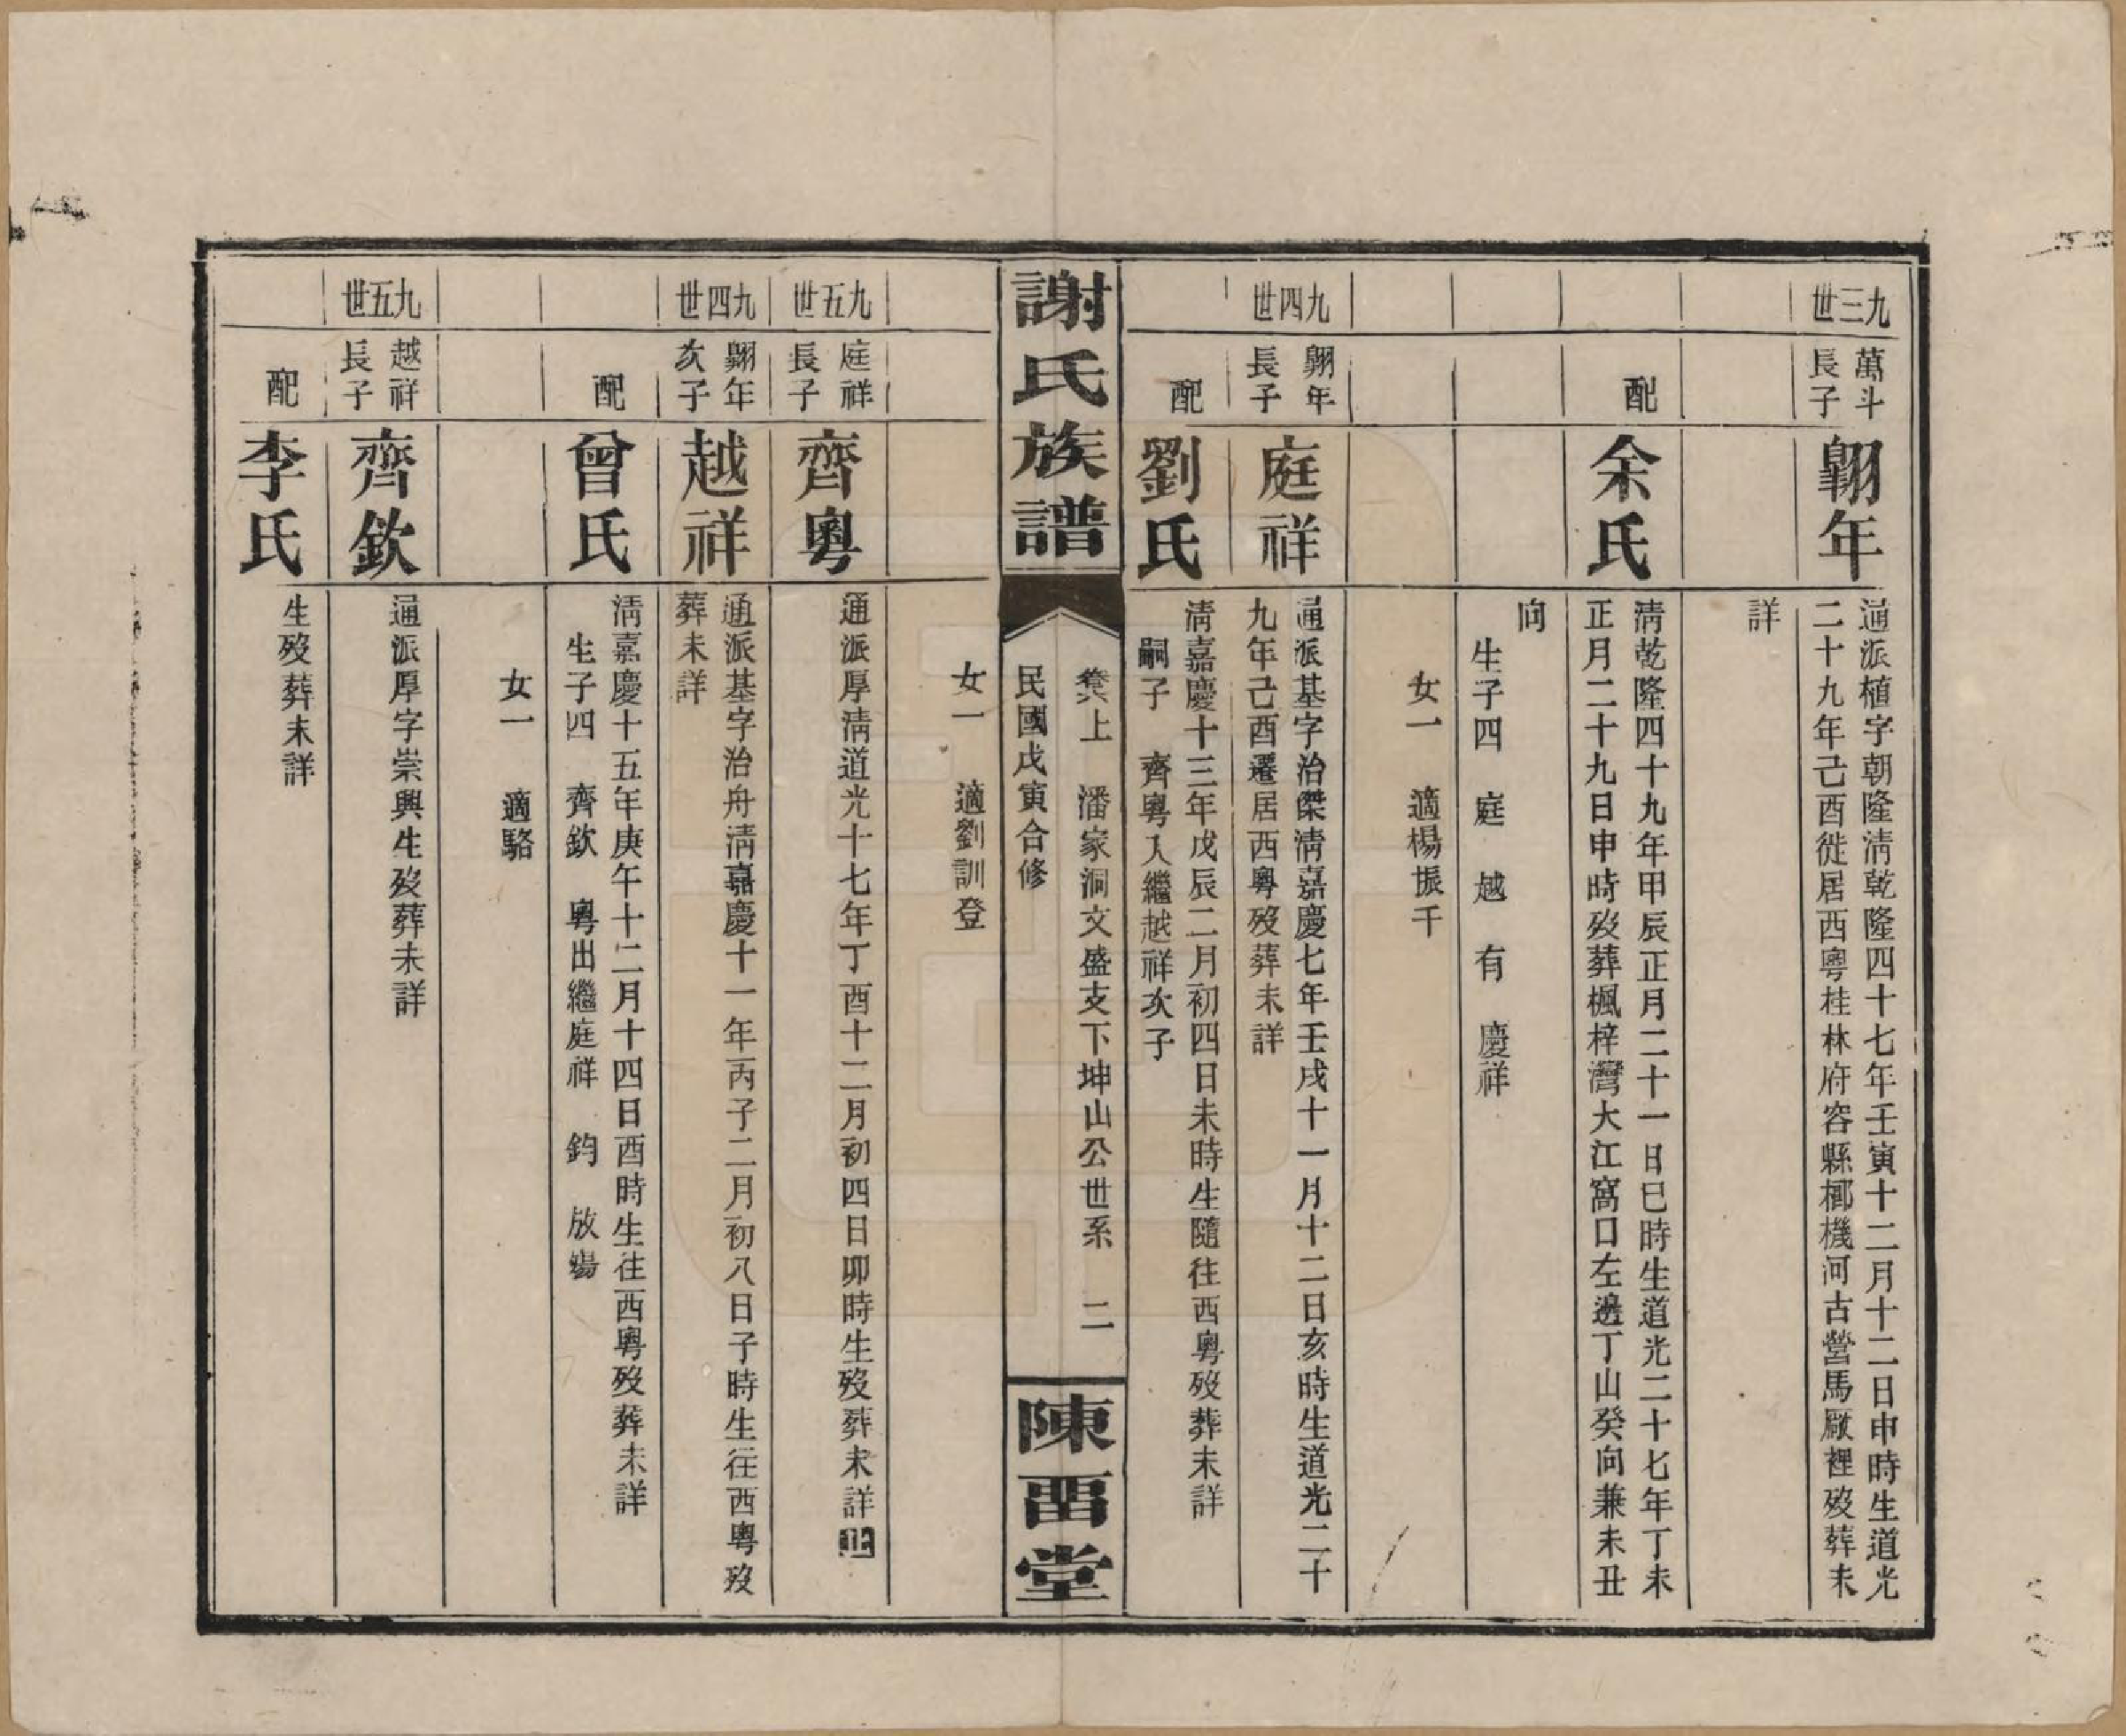 九三世
萬斗
長子
翺年
通派植字朝隆淸乾隆四十七年壬寅十二月十二日申時生道光
二十九年己酉徙居西粵桂林府容縣梛機河古營馬厰裡歿葬未
詳
配
余氏
淸乾隆四十九年甲辰正月二十一日巳時生道光二十七年丁未
正月二十九日申時歿葬楓梓灣大江窩口左邊丁山癸向兼未丑
向
生子四 庭 越 有 慶祥
女一 適楊振千
九四世
翺年
長子
庭祥
通派基字治傑淸嘉慶七年壬戌十一月十二日亥時生道光二十
九年己酉遷居西粵歿葬未詳
配
劉氏
淸嘉慶十三年戊辰二月初四日未時生隨往西粵歿葬未詳
嗣子 齊粵入繼越祥次子
謝氏族譜
卷六上 潘家洞文盛支下坤山公世系 二
民國戊寅合修
陳畱堂
女一 適劉訓登
九五世
庭祥
長子
齊粵
通派厚淸道光十七年丁酉十二月初四日卯時生歿葬未詳止
九四世
翺年
次子
越祥
通派基字治舟淸嘉慶十一年丙子二月初八日子時生往西粵歿
葬未詳
配
曾氏
淸嘉慶十五年庚午十二月十四日酉時生往西粵歿葬未詳
生子四 齊欽 粵出繼庭祥 鈞 放殤
女一 適駱
九五世
越祥
長子
齊欽
通派厚字崇興生歿葬未詳
配
李氏
生歿葬未詳